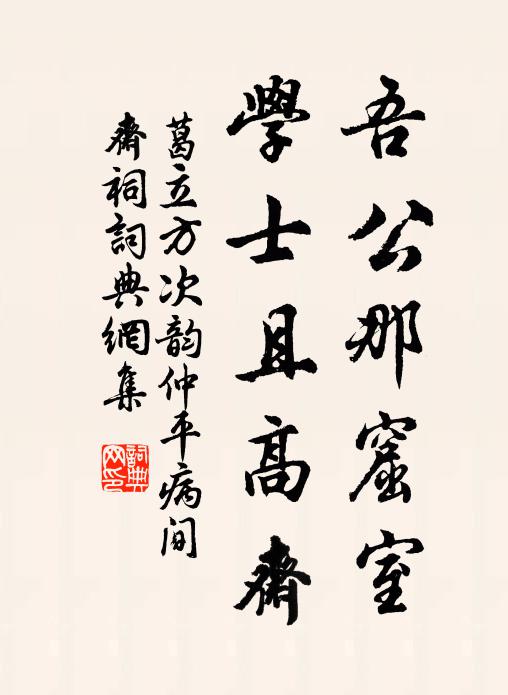 吾公那窟室
學士且高齋
葛立方次韵仲平病間
齋祠詞典網集
詞典网印